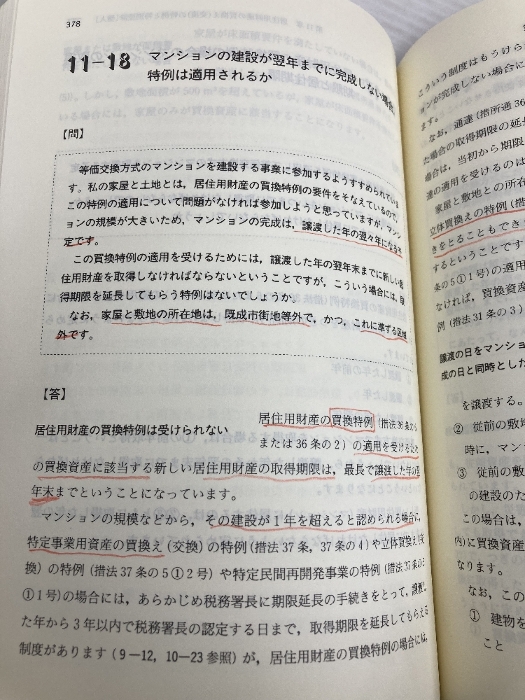 378
11-18 マンションの建設が翌年までに完成しない場合、
特例は適用されるか
【問】
等価交換方式のマンションを建設する事業に参加するようすすめられていま
す。私の家屋と土地とは、居住用財産の買換特例の要件をそなえているので、
この特例の適用について問題がなければ参加しようと思っていますが、マンシ
ョンの規模が大きいため、マンションの完成は、譲渡した年の翌々年になる予
定です。
この買換特例の適用を受けるためには、譲渡した年の翌年末までに新しい居
住用財産を取得しなければならないということですが、こういう場合には、取
得期限を延長してもらう特例はないでしょうか。
なお、家屋と敷地の所在地は、既成市街地等外で、かつ、これに準ずる区域
外です。
【答】
居住用財産の買換特例は受けられない
居住用財産の買換特例(措法36条の
または36条の2)の適用を受けるため
の買換資産に該当する新しい居住用財産の取得期限は、最長で譲渡した年の翌
年末までということになっています。
マンションの規模などから、その建設が1年を超えると認められる場合に、
特定事業用資産の買換え(交換)の特例(措法37条、37条の4)や立体買換え(交
換)の特例(措法37条の5①2号)や特定民間再開発事業の特例(措法37条の5
①1号)の場合には、あらかじめ税務署長に期限延長の手続きをとって、譲渡し
た年から3年以内で税務署長の認定する日まで、取得期限を延長してもらえる
制度があります(9—12、10—23参照)が、居住用財産の買換特例の場合には、
こういう制度はもうけら
ションが完成しない場合に
ます。
なお、通達(措所通36
た場合の取得期限の延
場合は、当初から期限
達の適用を受けるのは
家屋と敷地との所在
立体買換えの特例(措
きをとることもでき
するということです
条の5①1号)の適用
なければ、買換資産
例(措法31条の3)
譲渡の日をマンショ
成の日と同時とした
を譲渡する。
② 従前の敷地
時に、マン
③ 従前の敷
の建設のた
この場合は、
内)に買換資産
なります。
なお、この
① 建物を
こと